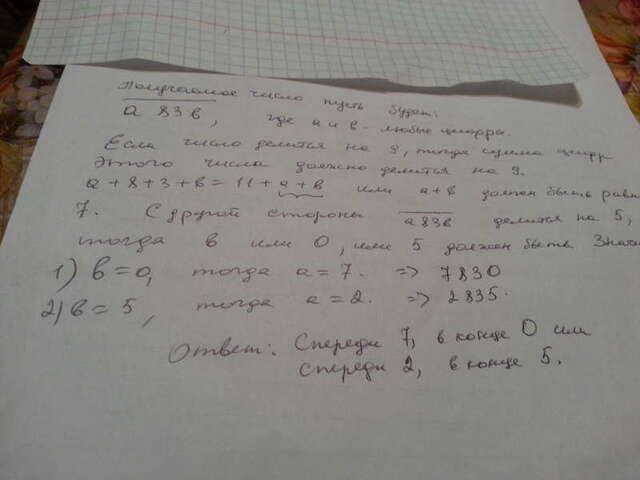 Получаемое число пусть будет:
a 83в, где a и в - любые цифры.
Если число делится на 9, тогда сумма цифр
этого числа должно делится на 9.
a + 8 + 3 + в = 11 + a + в или a + в должен быть равн
7. С другой стороны a83в делится на 5,
тогда в или 0, или 5 должен быть. Значи
1) в = 0, тогда a = 7. => 7830
2) в = 5, тогда a = 2. => 2835.
Ответ: Спереди 7, в конце 0 или
спереди 2, в конце 5.